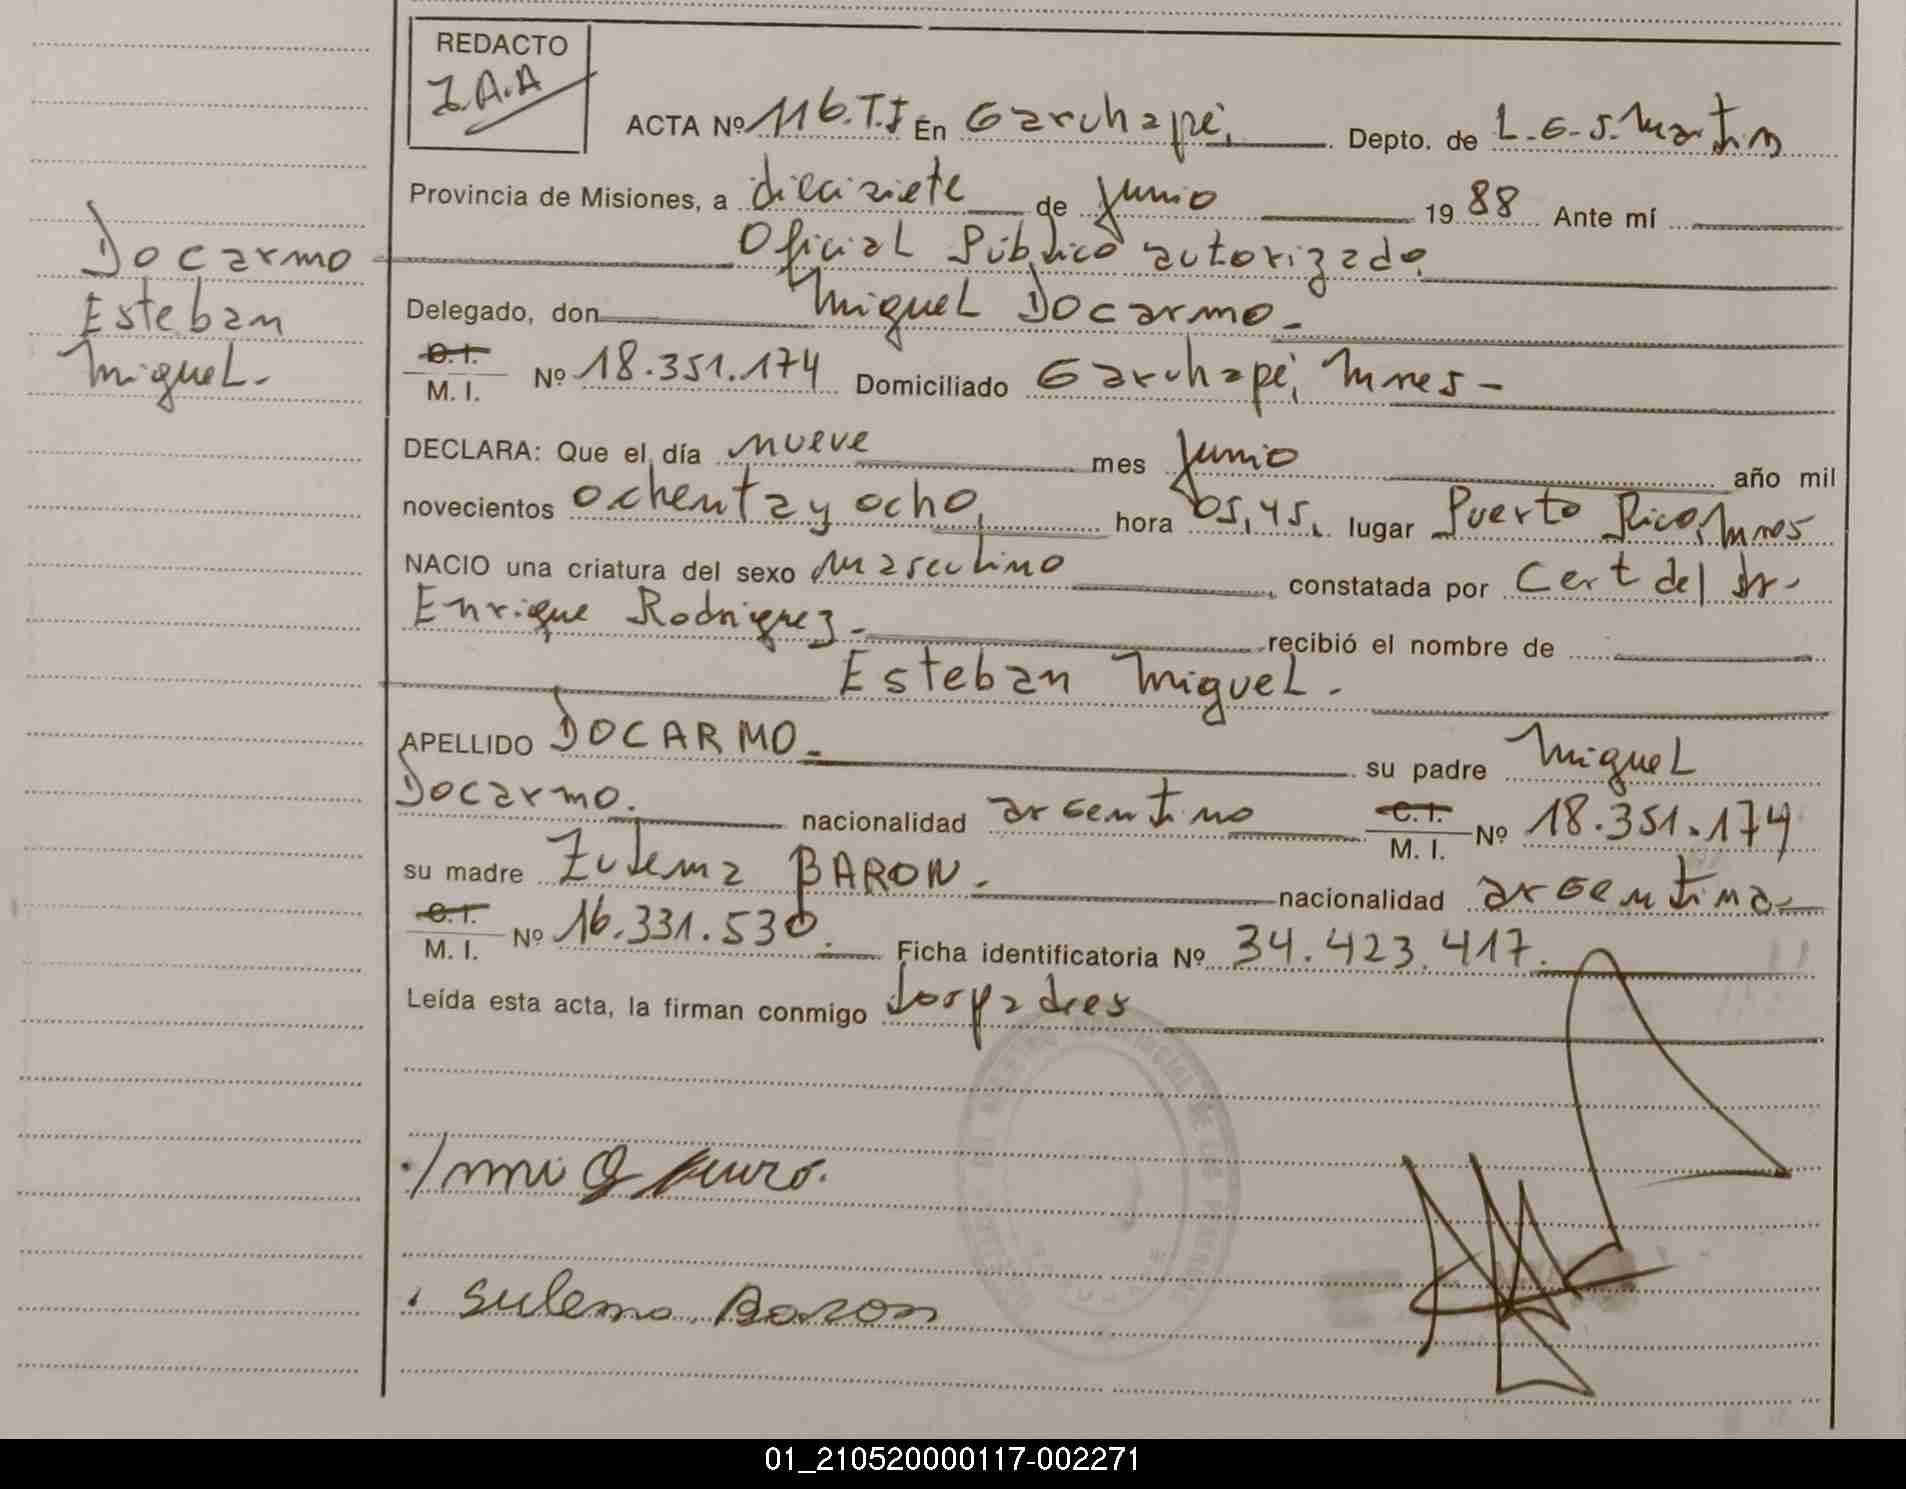 REDACTO
Z.A.A
ACTA Nº 116.T.I En Garuhapé, Depto. de L.G.S.Martin
Provincia de Misiones, a diecisiete de junio 1988 Ante mí
Oficial Público autorizado
Delegado, don Miguel Docarmo.
C.I.
M. I. Nº 18.351.174 Domiciliado Garuhapé, Mnes-
DECLARA: Que el día nueve mes junio año mil
novecientos ochenta y ocho, hora 05,45, lugar Puerto Rico, Mnes
NACIO una criatura del sexo masculino, constatada por Cert del Dr.
Enrique Rodriguez.- recibió el nombre de
Esteban Miguel.
APELLIDO DOCARMO. su padre Miguel
Docarmo. nacionalidad argentino C.I.
M. I. Nº 18.351.174
su madre Zulema BARON.- nacionalidad argentina-
C.I.
M. I. Nº 16.331.530. Ficha identificatoria Nº 34.423.417.
Leída esta acta, la firman conmigo los padres
Docarmo
Esteban
Miguel.
Sulema Baron
01_210520000117-002271